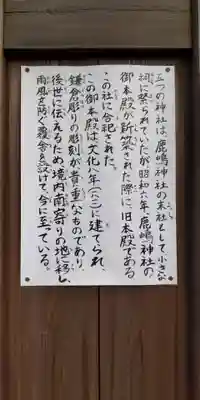 五つの神社は、鹿嶋神社の末社として小さな
祠に祭られていたが昭和六年、鹿嶋神社の
御本殿が新築された際に、旧本殿である
この社に合祀された。
この御本殿は文化八年(一八一一)に建てられ、
鎌倉彫りの彫刻が貴重なものであり、
後世に伝えるため、境内南寄りの地に移し、
雨風を防ぐ覆舎を設けて、今に至っている。